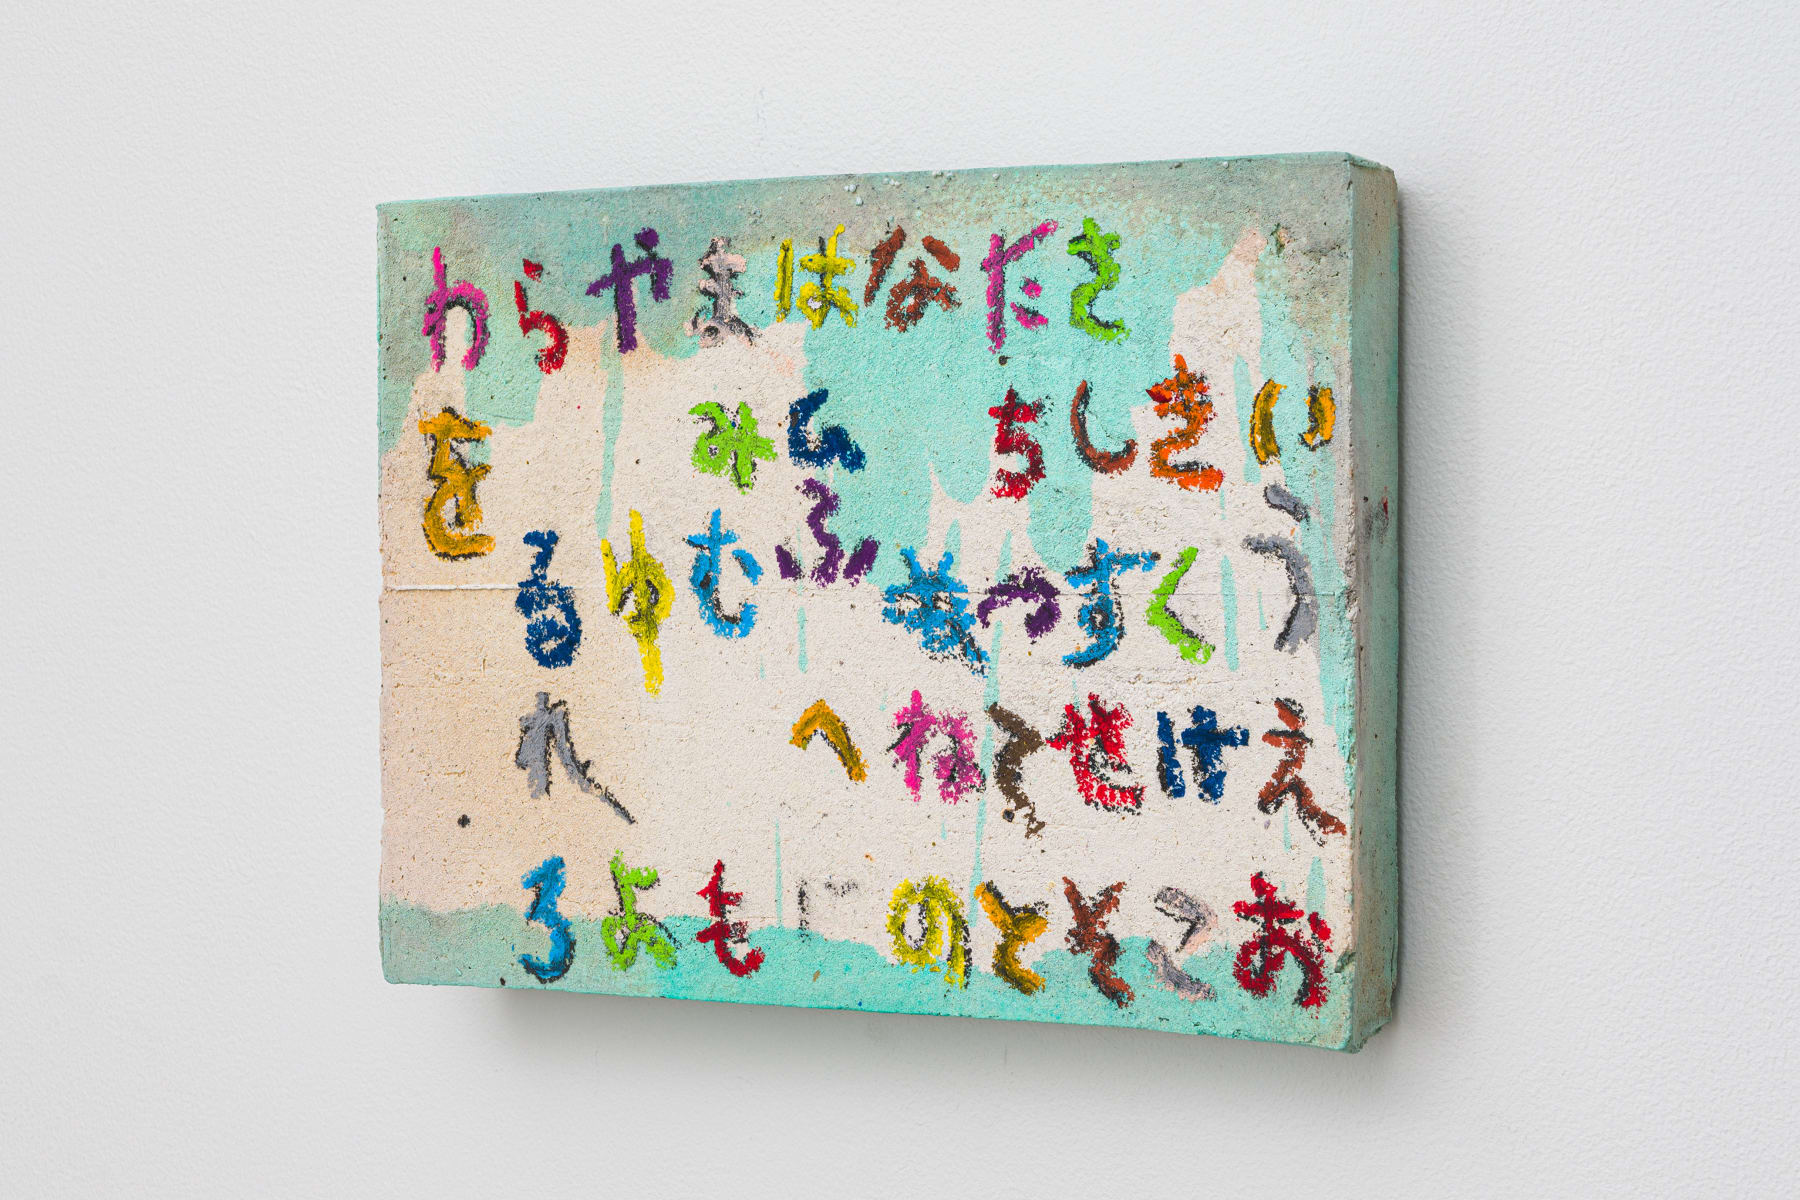 いうえお
きくけこ
きしすせそ
たちつてと
なねの
はひふへ
まみむも
やゆよ
らるれろ
わを